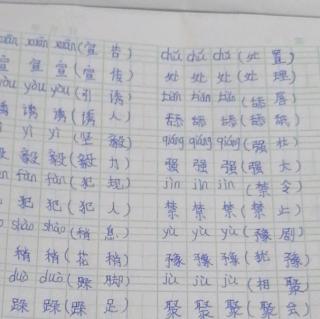 xuān xuān (宣告)
宣 宣 (宣传)
yòu yòu (引诱)
诱 诱 (诱人)
yì yì (坚毅)
毅 毅 (毅力)
fàn fàn (犯规)
犯 犯 (犯人)
shào shào (稍息)
稍 稍 (花稍)
duò duò (跺脚)
跺 跺 (跺足)
chǔ chǔ chǔ (处置)
处 处 处 (处理)
tiǎn tiǎn tiǎn (舔唇)
舔 舔 舔 (舔舐)
qiáng qiáng qiáng (强壮)
强 强 强 (强大)
jìn jìn jìn (禁令)
禁 禁 禁 (禁止)
yù yù yù (豫剧)
豫 豫 豫 (犹豫)
jù jù jù (相聚)
聚 聚 聚 (聚会)